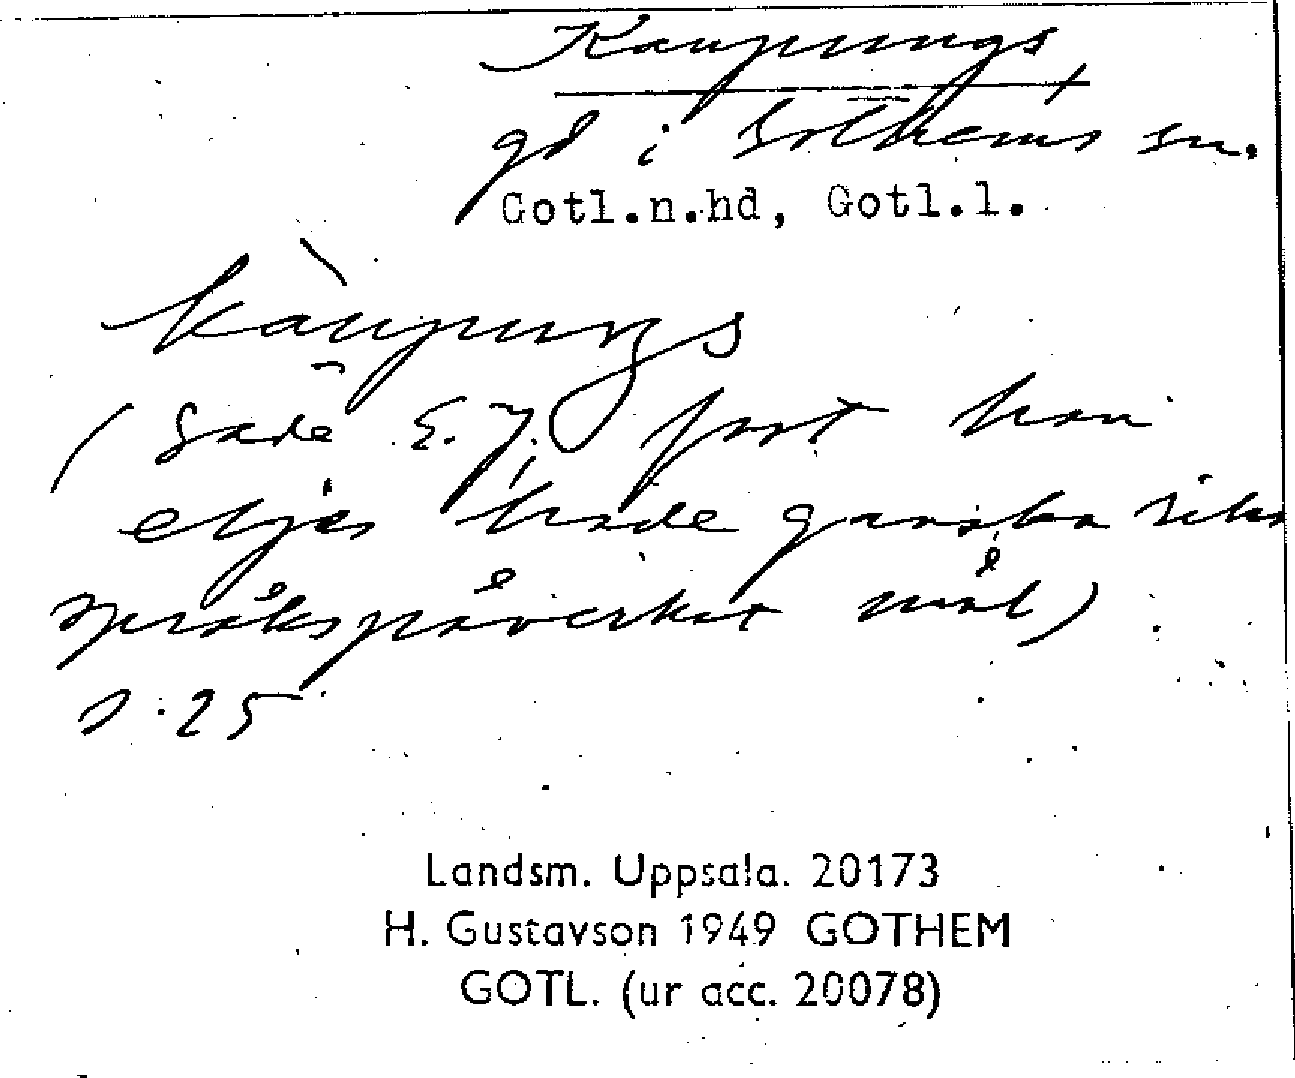 Kaupungs
gd i Gothems sn.
Gotl.n.hd, Gotl.l.
kàupuŋs
(Sade E.J. fast han
eljes hade ganska riks
språkspåverkat mål)
s. 25
Landsm. Uppsala. 20173
H. Gustavson 1949 GOTHEM
GOTL. (ur acc. 20078)